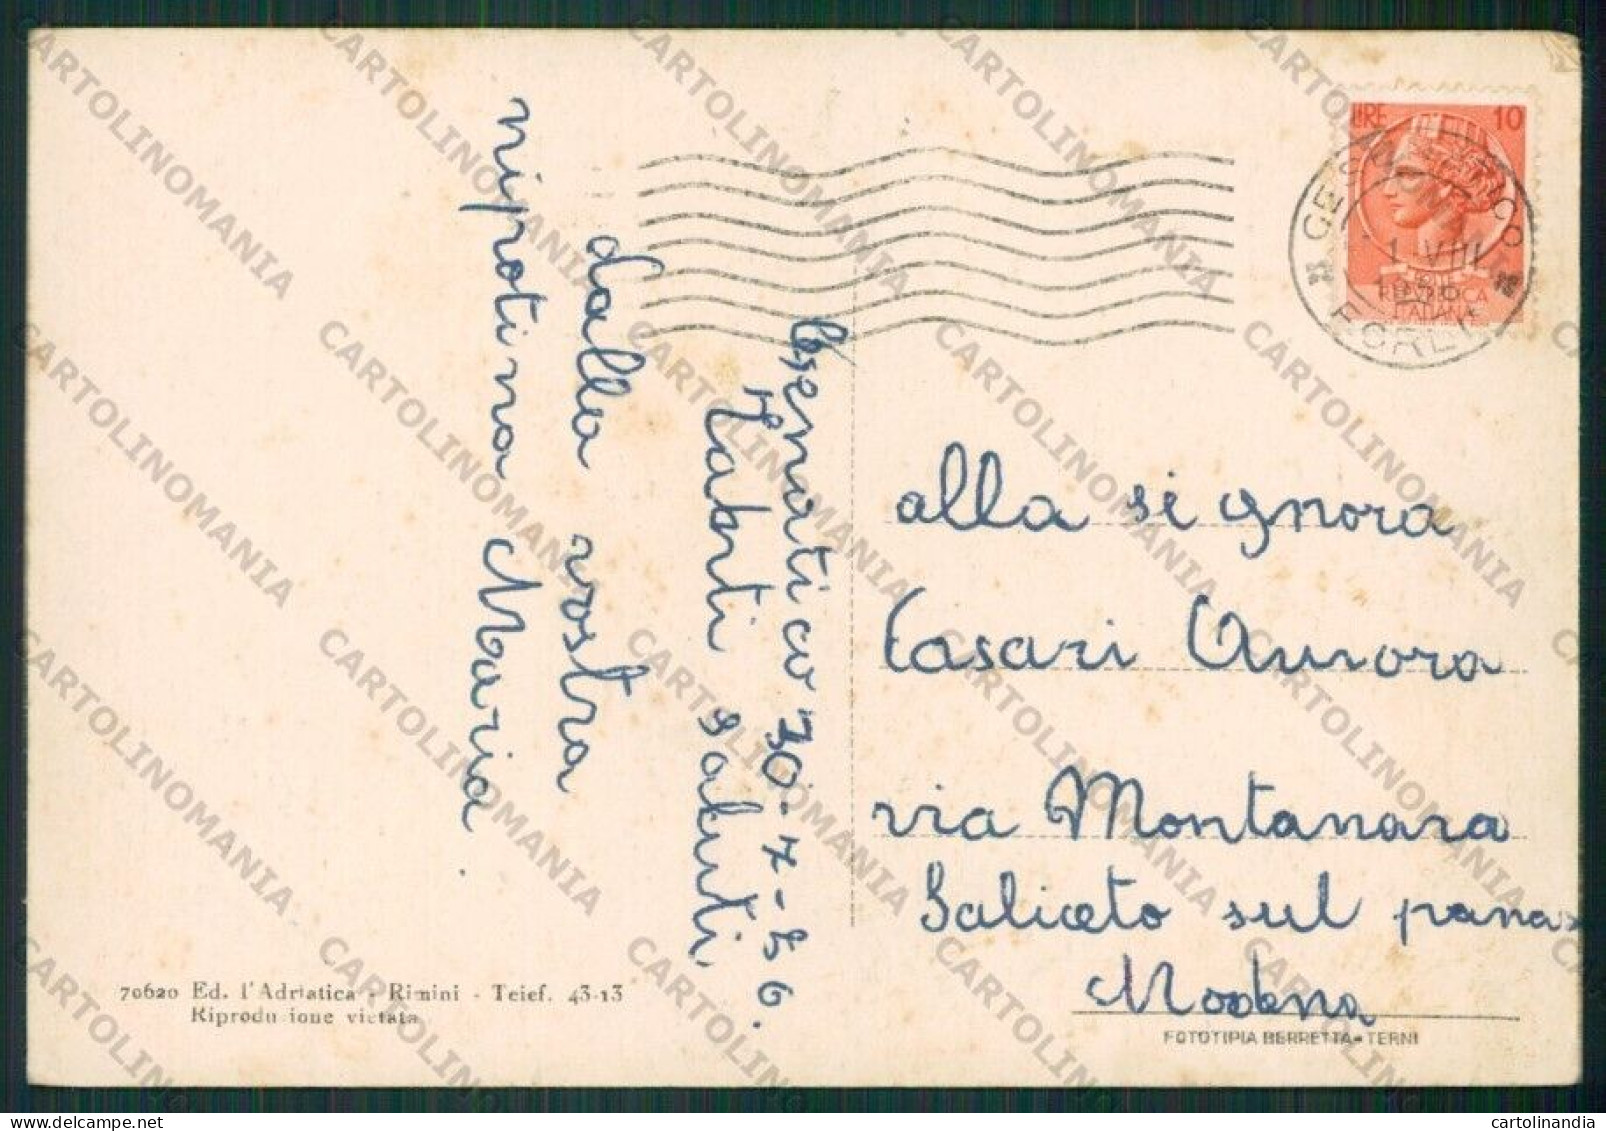 Cesenatico 30-7-56.
Tanti saluti
dalla vostra
nipotina Maria.
LIRE 10
CESENATICO
1 VIII
1956
FORLI
REPUBBLICA
ITALIANA
alla signora
Casari Aurora
via Montanara
Saliceto sul panaro
Modena
70620 Ed. l'Adriatica - Rimini - Telef. 43-13
Riproduzione vietata
FOTOTIPIA BERRETTA - TERNI
CARTOLINOMANIA
cartolinandia